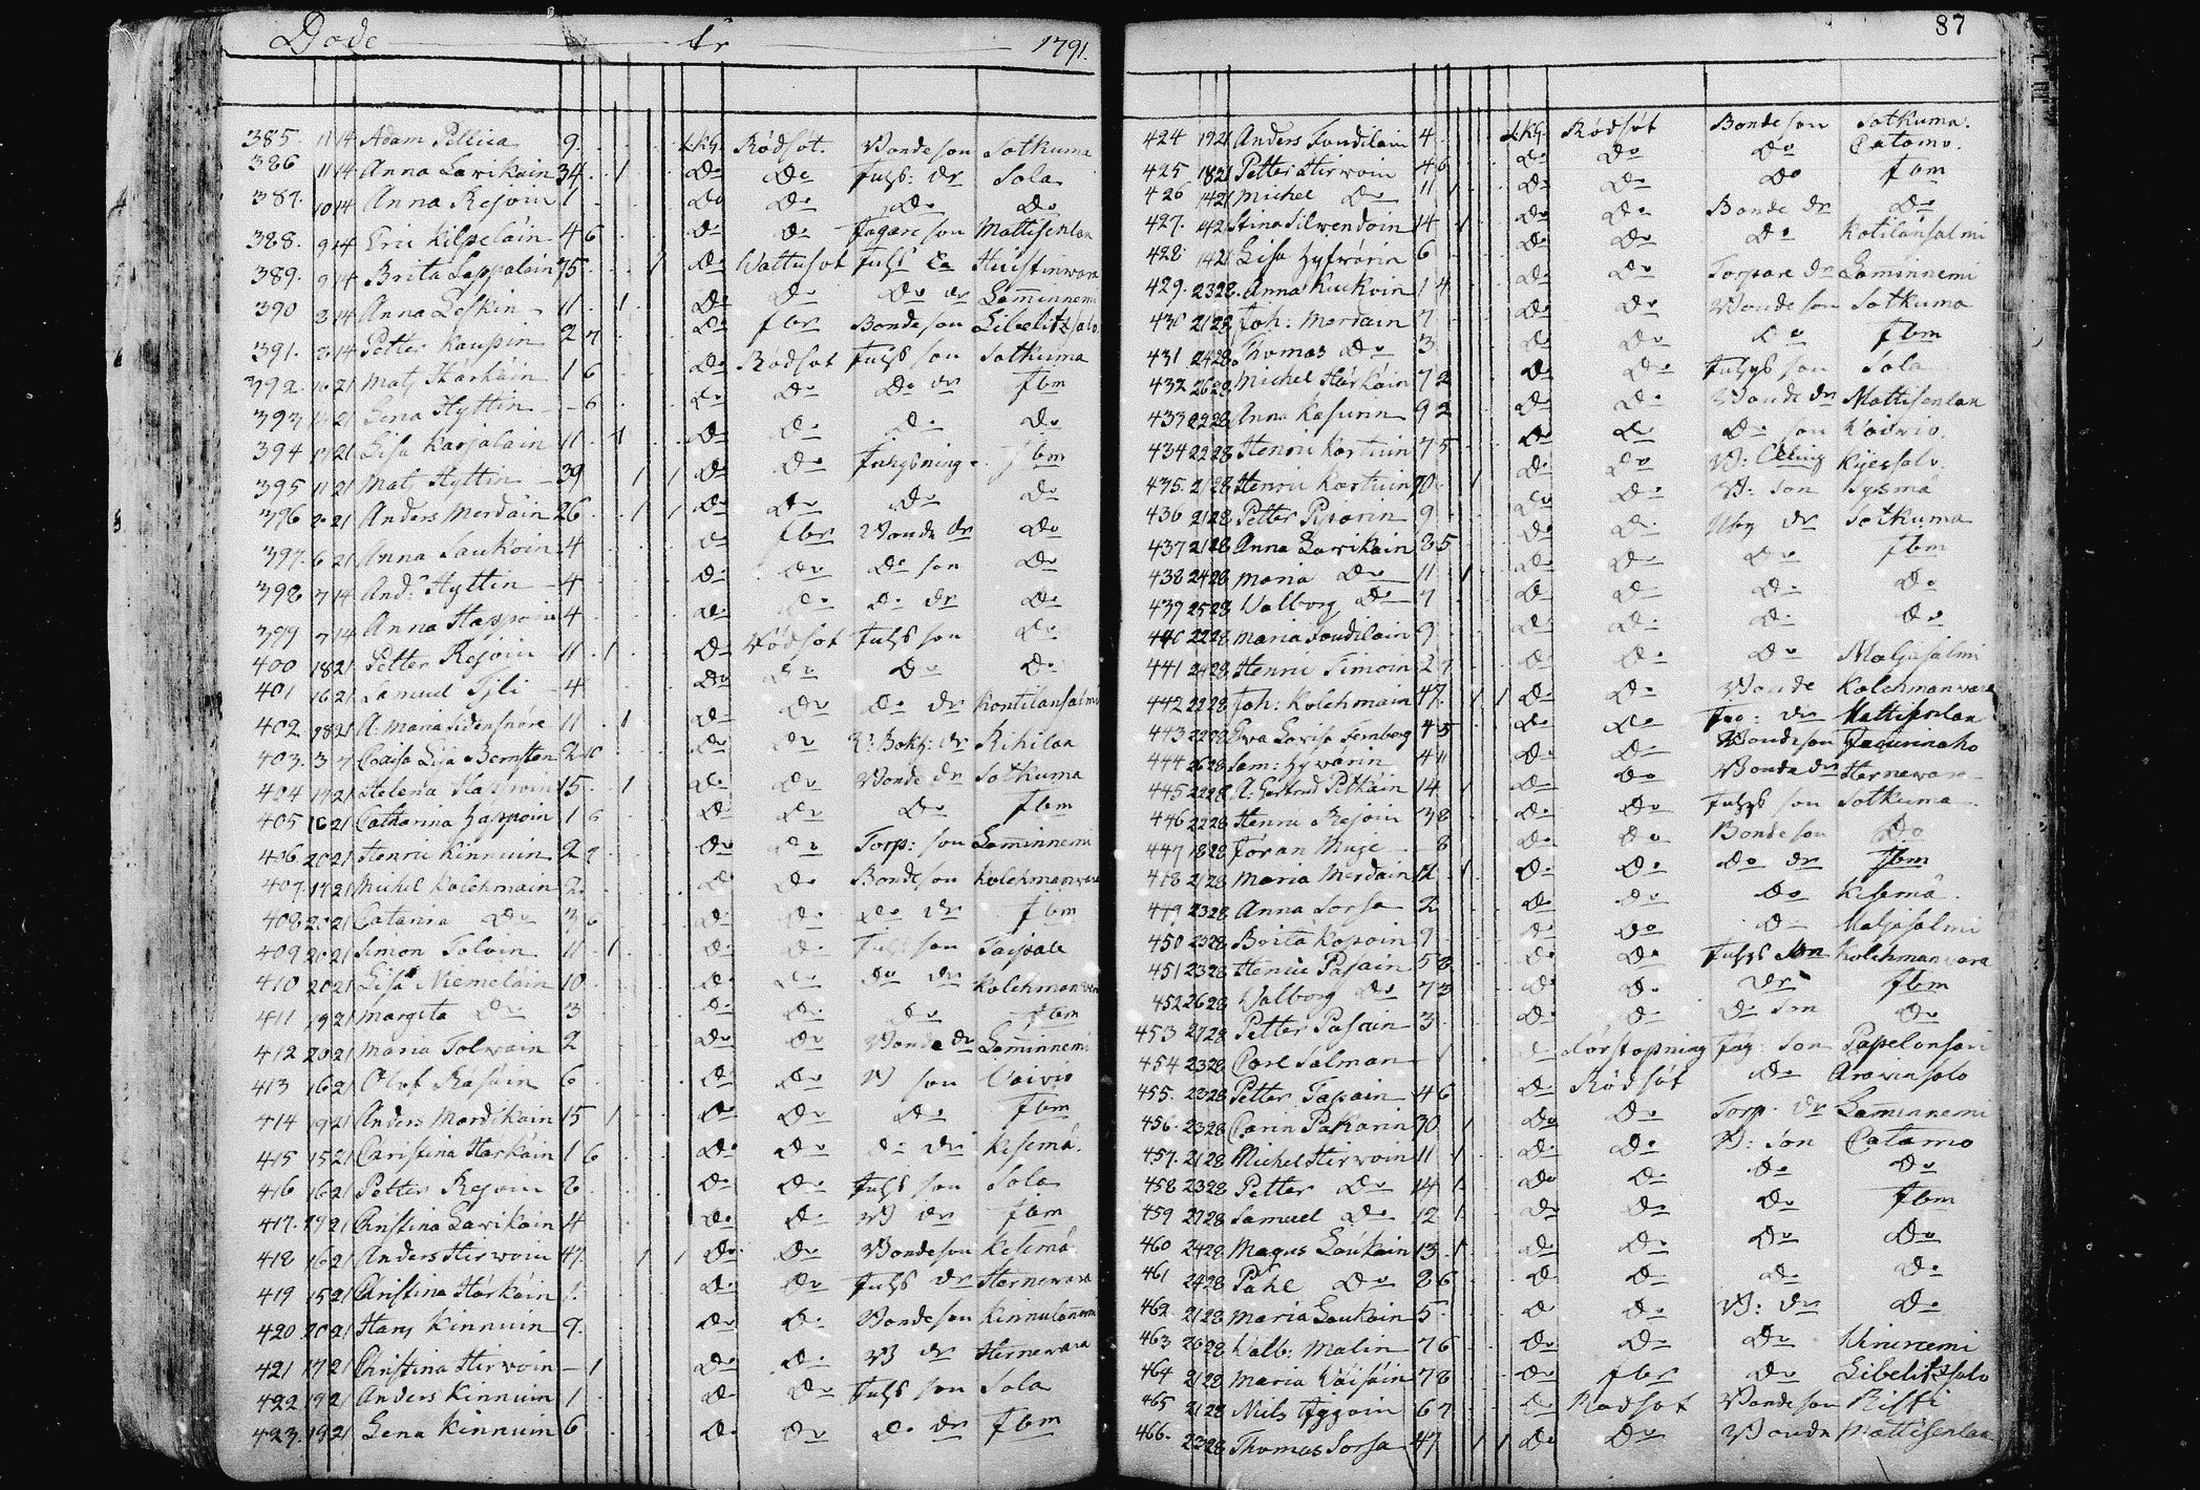 Döde år 1791.
385. 11 14 Adam Pellica 9. LKG. Rödsot. Bonde son Sotkuma
386 11 14 Anna Lavikain 34. 1 Do Do Inhs: dr Sola
387. 10 14 Anna Rejoin 1 Do Do Do Do
388. 9 14 Eric Kilpeläin 4 6 Do Do Jägare son Mattisenlax
389. 9 14 Brita Lappalain 75 1 Do Wattusot Inhs Do Huistinwara
390 3 14 Anna Loskin 11. 1 Do Do Do dr Laminnemi
391. 14 Petter Kaupin 2 7 Do fbr Bonde son Libelitzsalo
392. 21 Mats Harkain 1 6 Do Rödsot Inhs son Sotkuma
393 21 Lena Hyttin - 6 Do Do Do dr Ibm
394 17 21 Lisa Karjalain 11. 1 Do Do Do Do
395 11 21 Mat Hyttin 39 1 1 Do Do Inhysning Ibm
396 20 21 Anders Merdäin 26 1 1 Do Do Do Do
397. 6 21 Anna Saukoin 4 Do fbr Bonde dr Do
398 7 14 And: Hyttin 4 Do Do Do son Do
399 7 14 Anna Happoin 4 Do Do Do dr Do
400 18 21 Petter Rejoin 11. 1 Do Rödsot Inhs son Do
401 16 21 Samuel Tjli 4 Do Do Do Do
402 18 21 A: Maria Sidensnöre 11 1 Do Do Do dr Kontilansalmi
403. 3 7 Caisa Lisa Bernsten 2 10 Do Do Bokh: dr Rihilax
404 17 21 Helena Harwin 15. 1 Do Do Bonde dr Sotkuma
405 16 21 Catharina Happoin 1 6 Do Do Do Ibm
406 20 21 Henric Kinnuin 2 2 Do Do Torp: son Laminnemi
407. 17 21 Michel Kolehmain 2. Do Do Bonde son Kolehmanwara
408. 20 21 Catarina Do 3 6 Do Do Do dr Ibm
409 20 21 Simon Tolvain 11 1 Do Do Inhs son Taipale
410 20 21 Lisa Niemeläin 10. Do Do Do dr Kolehmanwara
411 19 21 Margeta Do 3 Do Do Do Ibm
412 20 21 Maria Tolwain 2 Do Do Bonde dr Laminnemi
413 16 21 Olof Räsäin 6 Do Do B son Vaivio
414 19 21 Anders Mardikain 15 1 Do Do Do Ibm
415 15 21 Christina Harkäin 1 6 Do Do Do dr Kisemä.
416 16 21 Petter Rejoin 8. Do Do Inhs son Sola
417. 19 21 Christina Lavikain 4 Do Do B dr Ibm
418 16 21 Anders Hirwoin 47. 1 1 Do Do Bonde son Kesemä
419 15 21 Christina Härkäin 1. Do Do Inhs dr Harnewara
420 20 21 Hans Kinnuin 9. Do Do Bonde son Kinnulanniemi
421 17 21 Christina Hirwoin - 1 Do Do B dr Hernewara
422. 19 21 Anders Kinnuin 1 Do Do Inhs son Sola
423. 19 21 Lena Kinnuin 6 Do Do Do dr Ibm
87
424 17 21 Anders Toudilain 4 LKG. Rödsot Bonde son Sotkuma.
425 18 21 Petter Hirwoin 4 6 Do Do Do Catamo.
426 14 21 Michel Do 11 1 Do Do Do Ibm
427. 14 21 Stina Silwendoin 14 1 Do Do Bonde dr Do
428 14 21 Lisa Hyfwärin 6 Do Do Do Kotilansalmi
429. 23 28 Anna Kuckoin 1 4 Do Do Torpare dr Laminnemi
430 21 28 Joh: Merdain 7 Do Do Bonde son Sotkuma
431 24 28 Thomas Do 3 Do Do Do Ibm
432 26 28 Michel Härkäin 7 2 Do Do Inhys son Sola
433 22 28 Anna Kasurin 9 2 Do Do Bonde dr Mattisenlax
434 22 28 Henric Kortuin 7 5 Do Do Do son Vaivio.
435. 21 28 Henric Kortuin 70 1 Do Do Kijessalo.
436 21 28 Petter Piporin 9 Do Do B: son
437 21 28 Anna Lavikain 8 5 Do Do dr Sotkuma
438 24 28 Maria Do 11 1 Do Do Do Ibm
439 25 28 Walborg Do 7 Do Do Do Do
440 22 28 Maria Toudilain 9 Do Do Do Do
441 21 28 Henric Timoin 2 7 Do Do Do Maljasalmi
442 22 28 Joh: Kolehmain 47. 1 1 Do Do Bonde Kolehmanwara
443 22 28 Ewa Lovisa Femberg 4 5 Do Do Jag: dr Mattisenlax
444 26 28 Sam: Hyvärin 4 11 Do Do Bonde son
445 22 28 A: Gertrud Pitkäin 14 1 Do Do Bonde dr Hernewara
446 22 28 Henric Rejoin 3 8 Do Do Inhys son Sotkuma
447 18 28 Jöran Muje - 8 Do Do Bonde son Do
448 21 28 Maria Merdain 12 1 Do Do Do dr Ibm
449 23 28 Anna Sorsa 2 Do Do Do Kisemä
450 23 28 Brita Kopoin 9 Do Do Do Maljasalmi
451 23 28 Henric Pasain 5 8 Do Do Inhys son Kolehmanwara
452 26 28 Walborg Do 7 3 Do Do Dr Ibm
453 27 28 Petter Pasain 3. Do Do Do son Do
454 23 28 Carl Salman - 1 Do Förstopning Jag: son Papelonsari
455. 23 28 Petter Tapain 4 6 Do Rödsot Do Arowinsalo
456. 23 28 Carin Pakarin 30 1 Do Do Torp: dr Laminnemi
457. 21 28 Michel Hirwoin 11 1 Do Do B: son Catamo
458 23 28 Petter Do 14 1 Do Do Do Do
459 27 28 Samuel Do 12 1 Do Do Do Ibm
460 24 28 Magnus Laukain 13 1 Do Do Do Do
461 24 28 Påhl Do 8 6 Do Do Do Do
462 21 28 Maria Laukain 5. Do Do B: dr Do
463 26 28 Walb: Malin 7 6 Do Do Do Vininiemi
464 21 28 Maria Väisäin 7 8 Do fbr Do Libelitzsalo
465 21 28 Nils Ägjain 6 7 Do Rödsot Bonde son Risti
466. 23 28 Thomas Sorsa 47 1 1 Do Do Bonde Mattisenlax